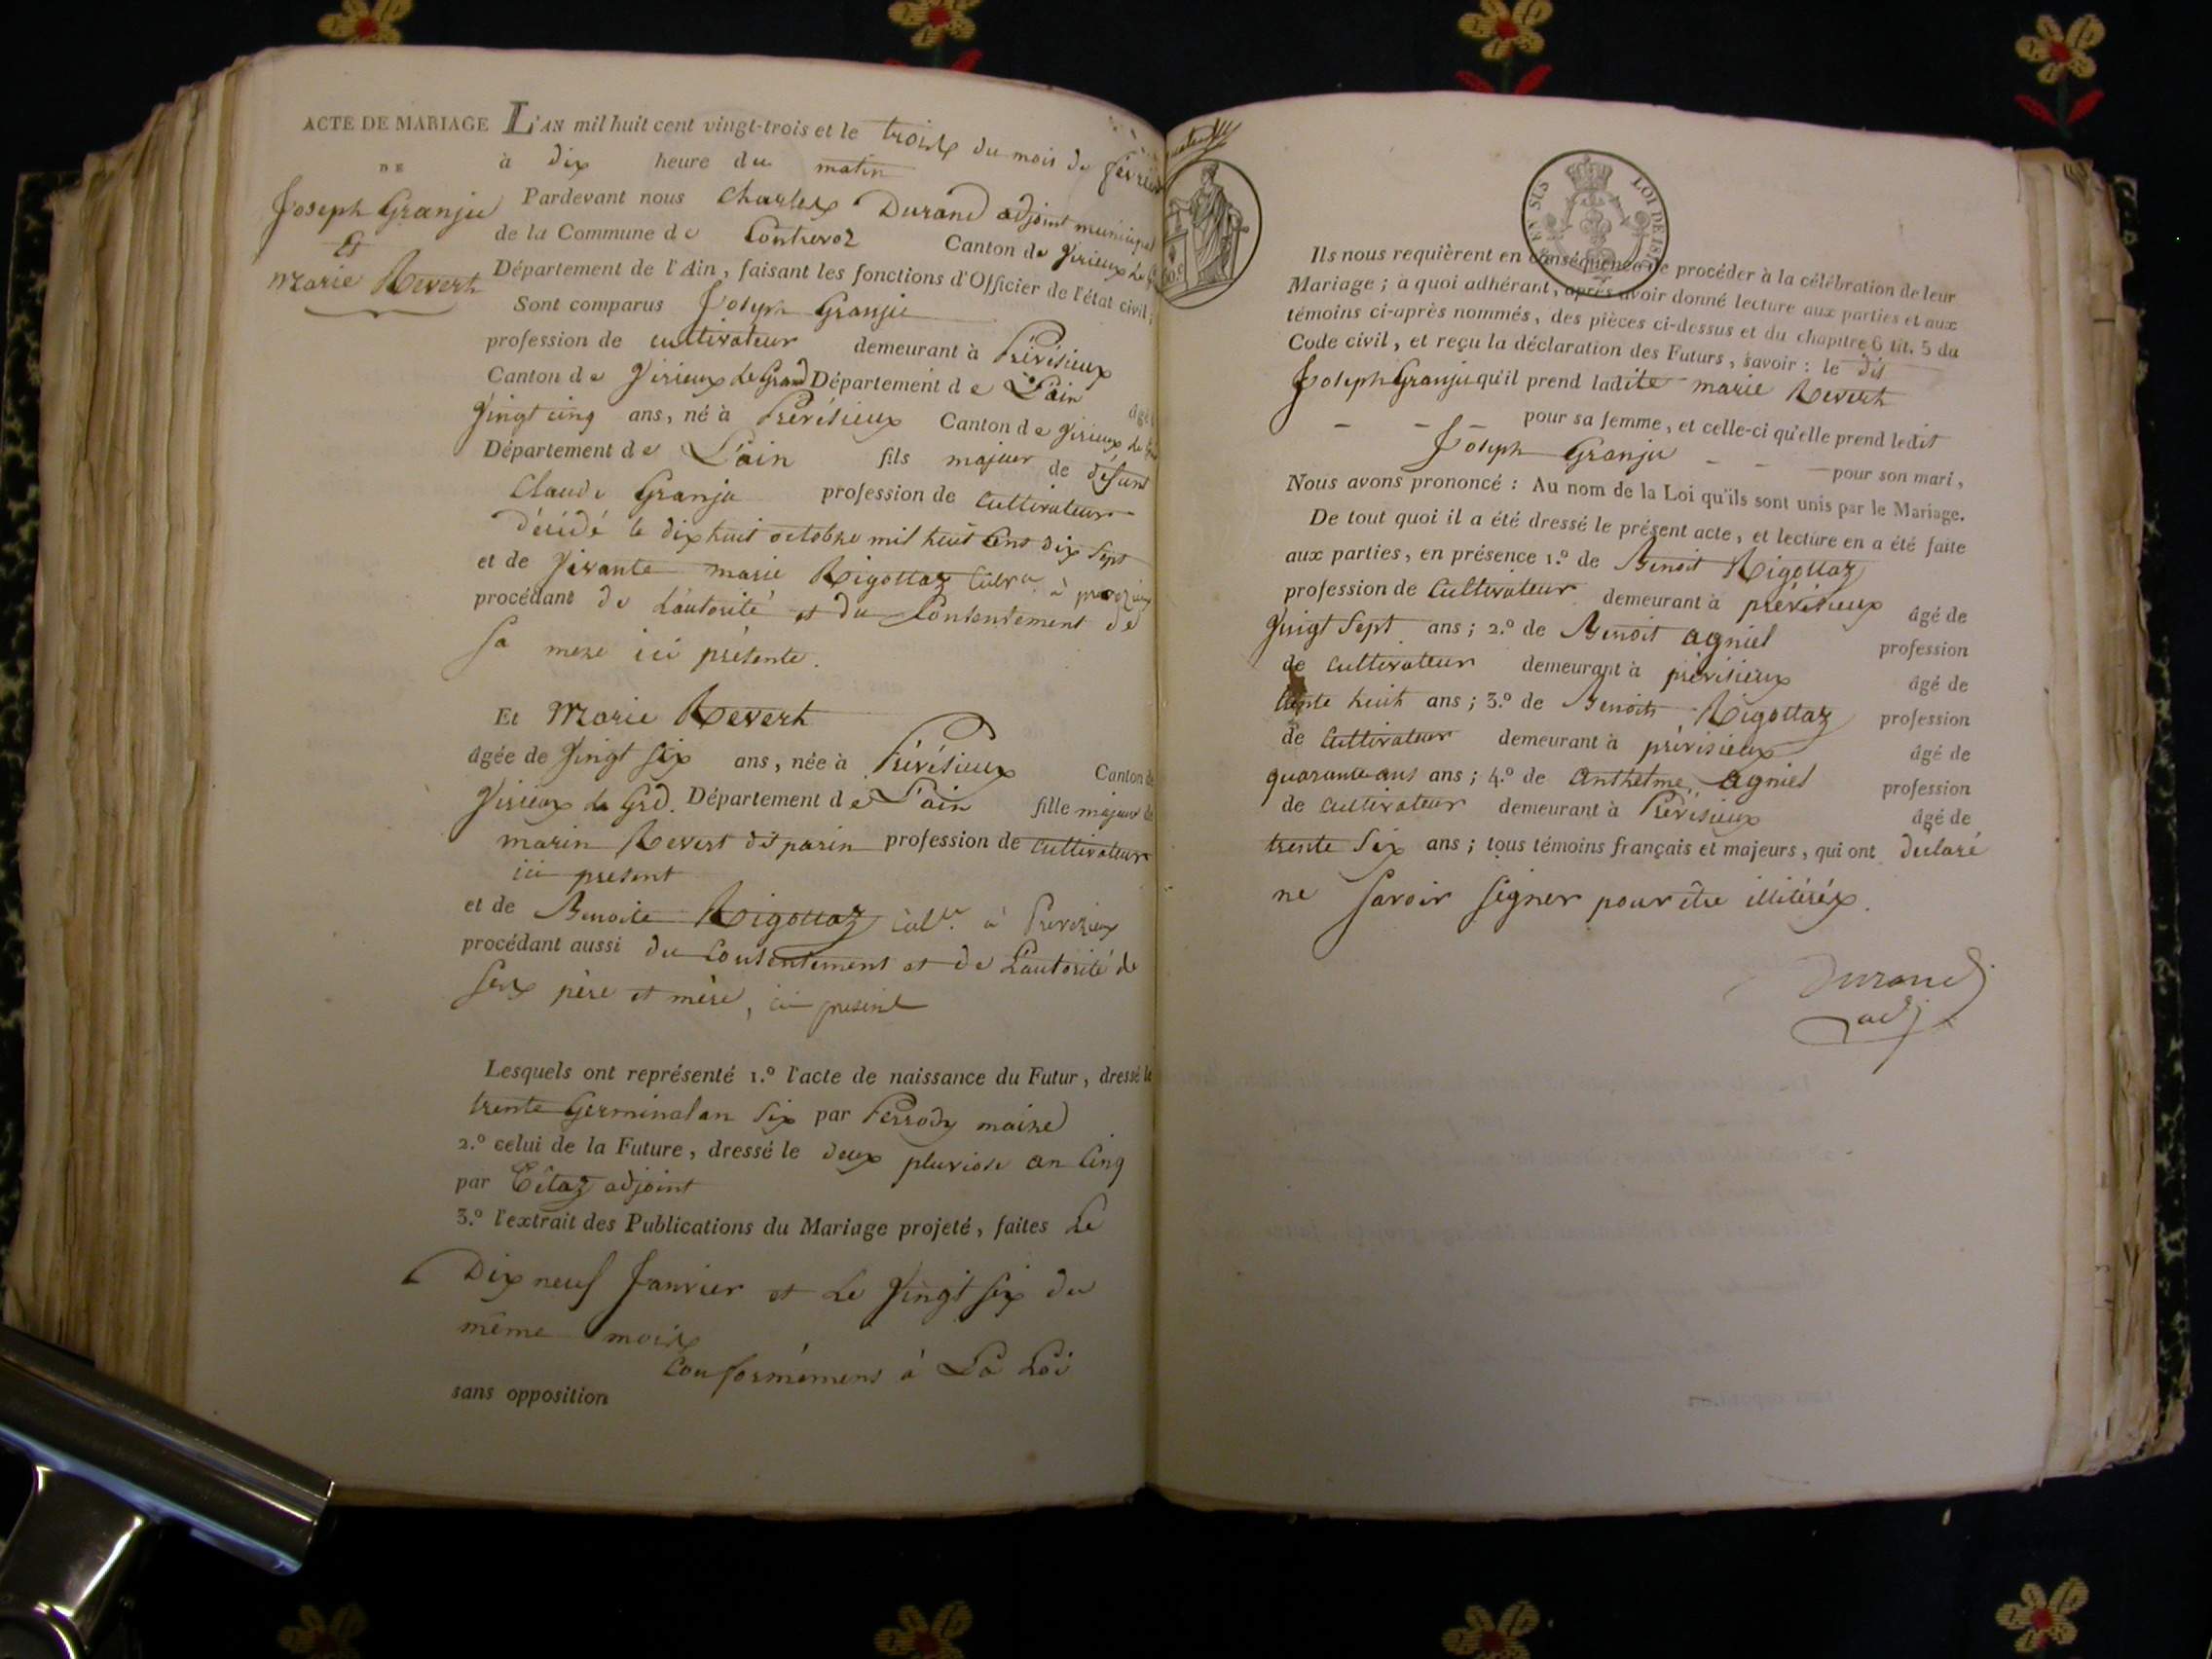 ACTE DE MARIAGE
DE
Joseph Granju
Et
Marie Revert
L'AN mil huit cent vingt-trois et le troisx du mois de février
à dix heure du matin
Pardevant nous Charlesx Durand adjoint municipal
de la Commune de Contrevoz Canton de Virieux Le
Département de l'Ain, faisant les fonctions d'Officier de l'état civil;
Sont comparus Joseph Granju
profession de cultivateur demeurant à Prévésieux
Canton de Virieux Le Grand Département de L'ain âgé
Vingt cinq ans, né à Prévésieux Canton de Virieux Le
Département de L'ain fils majeur de défunt
Claude Granju profession de Cultivateur
décédé le dix huit octobre mil huit Cent dix Sept
et de Vivante marie Rigottaz Cultr. à
procédant de L'autorité et du Consentement de
Sa mere ici présente.
Et Marie Revert
âgée de Vingt Six ans, née à Prévésieux Canton de
Virieux Le Grd. Département de L'ain fille majeur de
marin Revert dit parin profession de Cultivateur
ici present
et de Benoite Rigottaz Cult. à Prevezieux
procédant aussi du Consentement et de L'autorité de
Sesx père et mère, ici present
Lesquels ont représenté 1.º l'acte de naissance du Futur, dressé le
trente Germinal an Six par Perrody maire
2.º celui de la Future, dressé le deux pluviose an Cinq
par adjoint
3.º l'extrait des Publications du Mariage projeté, faites Le
Dix neuf Janvier et Le Vingt Six du
même moisx
Conformément à La Loi
sans opposition
EN SUS LOI DE 181
Ils nous requièrent en conséquence de procéder à la célébration de leur
Mariage; à quoi adhérant, après avoir donné lecture aux parties et aux
témoins ci-après nommés, des pièces ci-dessus et du chapitre 6 tit. 5 du
Code civil, et reçu la déclaration des Futurs, savoir: le dit
Joseph Granju qu'il prend ladite marie Revert
pour sa femme, et celle-ci qu'elle prend ledit
Joseph Granju pour son mari,
Nous avons prononcé: Au nom de la Loi qu'ils sont unis par le Mariage.
De tout quoi il a été dressé le présent acte, et lecture en a été faite
aux parties, en présence 1.º de Benoit Rigottaz
profession de Cultivateur demeurant à prévésieux âgé de
Vingt Sept ans; 2.º de Benoit Agniel profession
de Cultivateur demeurant à prévésieux âgé de
trente huit ans; 3.º de Benoit Rigottaz profession
de Cultivateur demeurant à prévésieux âgé de
quarante ans ans; 4.º de Anthelme Agniel profession
de Cultivateur demeurant à Prévésieux âgé de
trente Six ans; tous témoins français et majeurs, qui ont déclaré
ne Savoir Signer pour être illitéréx.
Durand
adj